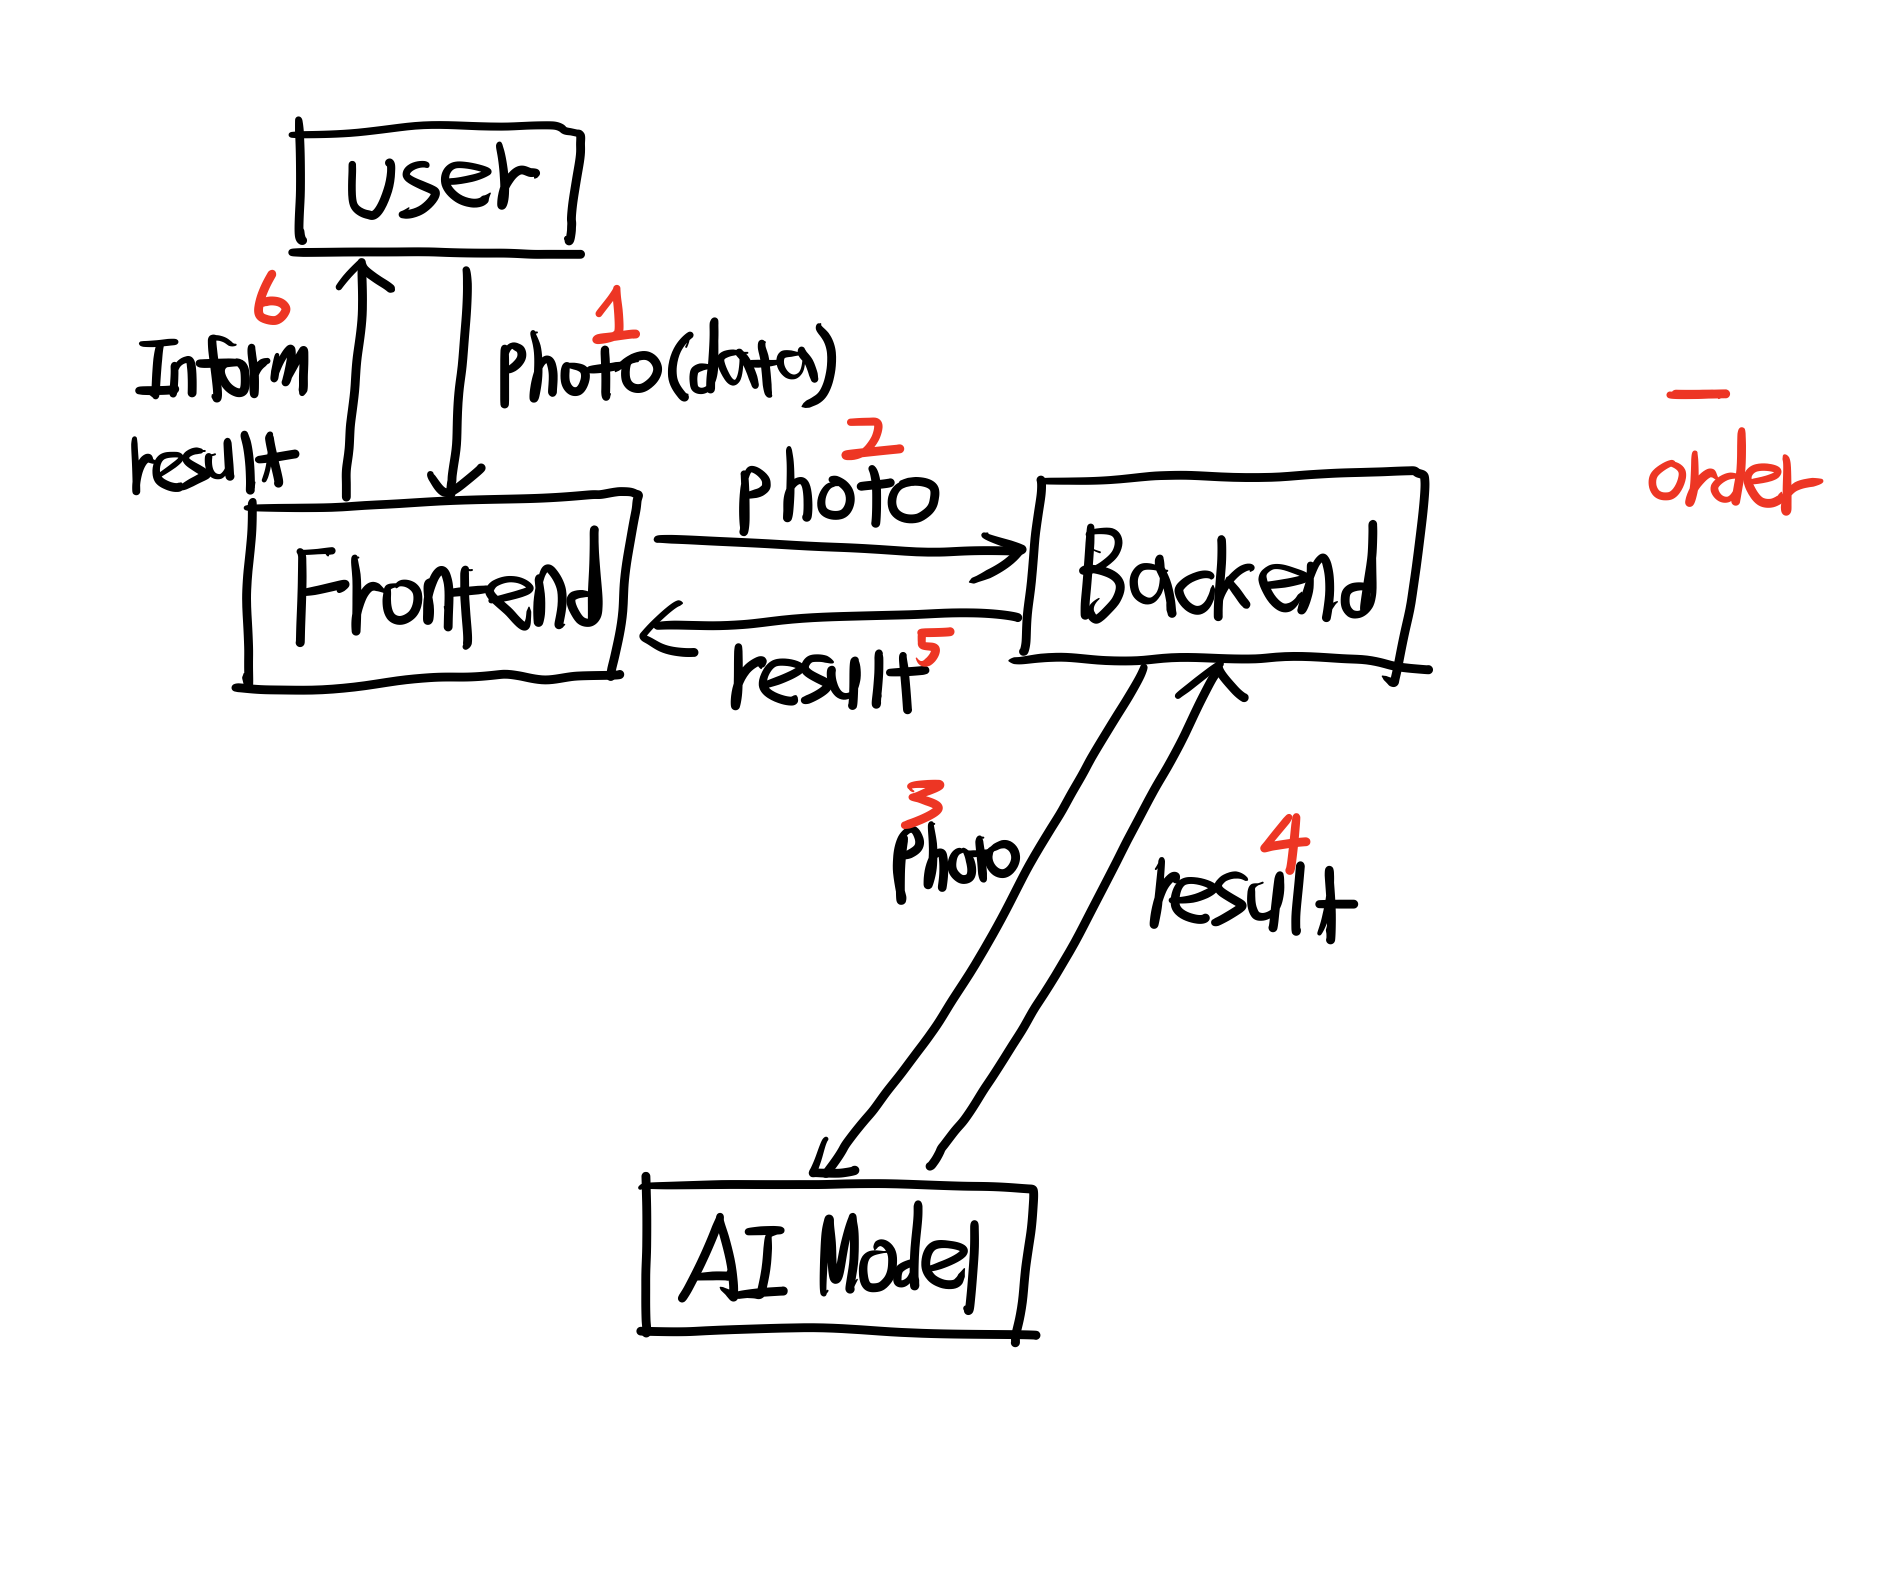 user
6
1
Inform
result
photo(data)
2
photo
order
Frontend
Backend
result
5
3
photo
4
result
AI Model